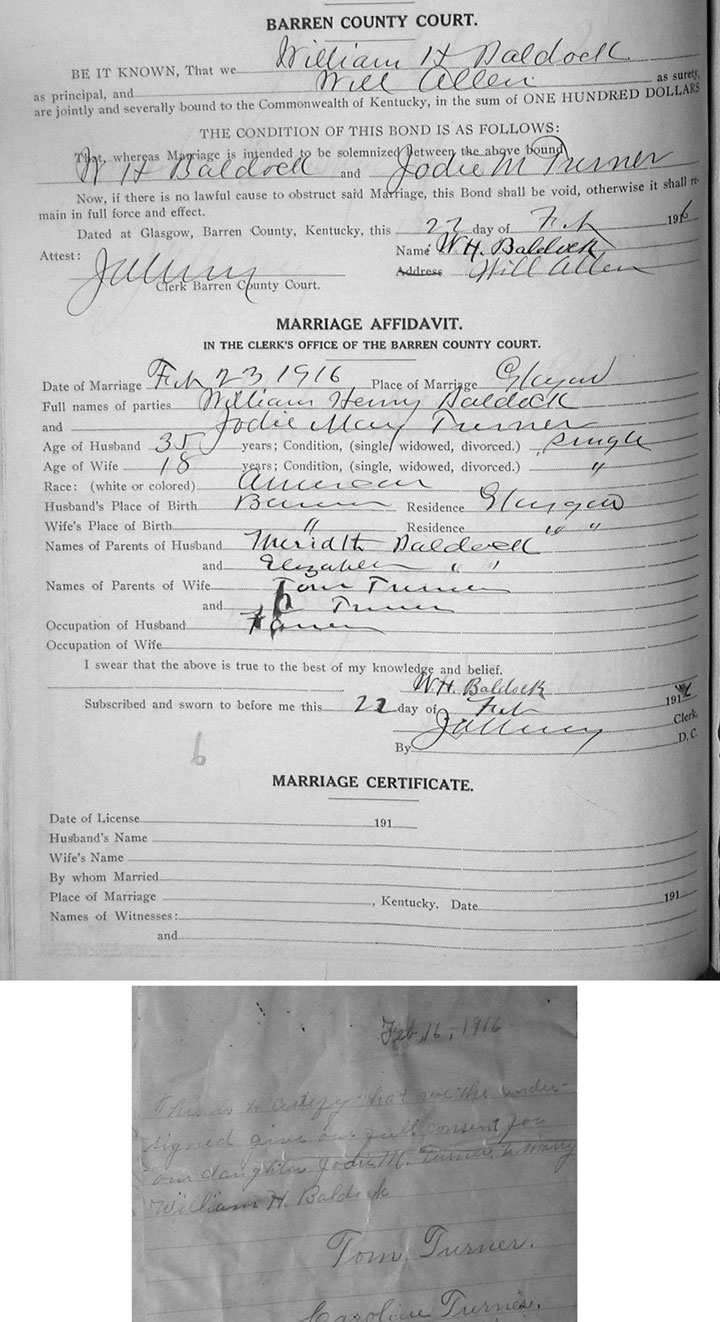 BARREN COUNTY COURT.
BE IT KNOWN, That we William H Baldock
as principal, and Will Allen as surety,
are jointly and severally bound to the Commonwealth of Kentucky, in the sum of ONE HUNDRED DOLLARS
THE CONDITION OF THIS BOND IS AS FOLLOWS:
That, whereas Marriage is intended to be solemnized between the above bound
W H Baldock and Jodie M Turner
Now, if there is no lawful cause to obstruct said Marriage, this Bond shall be void, otherwise it shall re-
main in full force and effect.
Dated at Glasgow, Barren County, Kentucky, this 22 day of Feb 1916
Attest: Name W. H. Baldock
Address Will Allen
Clerk Barren County Court.
MARRIAGE AFFIDAVIT.
IN THE CLERK'S OFFICE OF THE BARREN COUNTY COURT.
Date of Marriage Feb 23, 1916 Place of Marriage Glasgow
Full names of parties William Henry Baldock
and Jodie May Turner
Age of Husband 35 years; Condition, (single, widowed, divorced.) Single
Age of Wife 18 years; Condition, (single, widowed, divorced.) "
Race: (white or colored) American
Husband's Place of Birth Barren Residence Glasgow
Wife's Place of Birth " Residence " "
Names of Parents of Husband Meridith Baldock
and Elizabeth " "
Names of Parents of Wife Tom Turner
and Turner
Occupation of Husband Farmer
Occupation of Wife
I swear that the above is true to the best of my knowledge and belief.
W.H. Baldock
Subscribed and sworn to before me this 22 day of Feb 191
Clerk.
By D. C.
6
MARRIAGE CERTIFICATE.
Date of License 191
Husband's Name
Wife's Name
By whom Married
Place of Marriage , Kentucky. Date 191
Names of Witnesses:
and
Feb 16, 1916
This is to certify that we the under-
signed give our full consent for
our daughter Jodie M. Turner to marry
William H. Baldock
Tom Turner.
Caroline Turner.